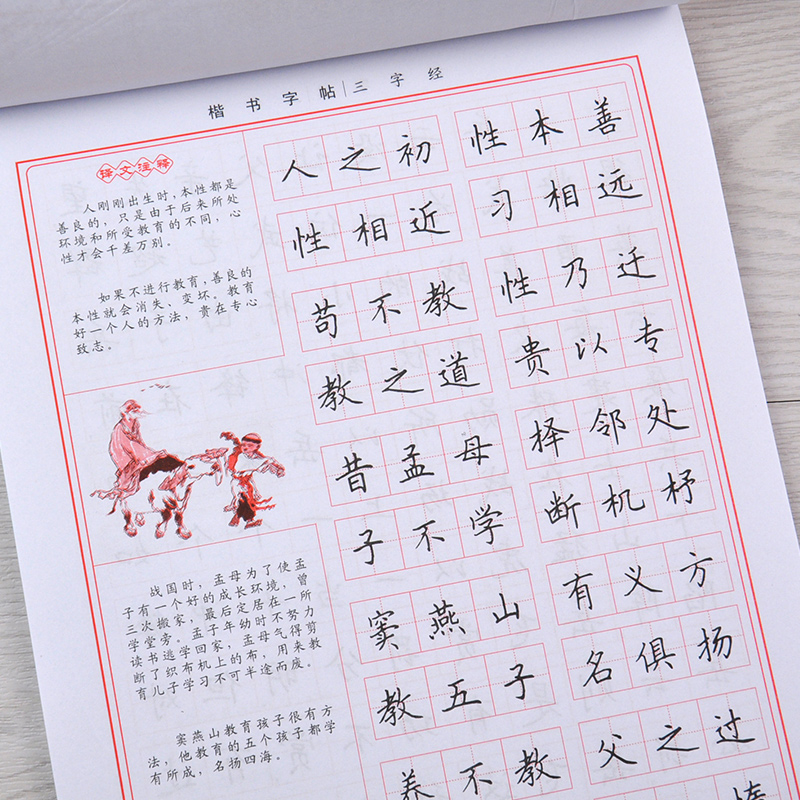 楷书字帖|三字经
译文注释
人刚刚出生时,本性都是
善良的,只是由于后来所处
环境和所受教育的不同,心
性才会千差万别。
如果不进行教育,善良的
本性就会消失、变坏。教育
好一个人的方法,贵在专心
致志。
战国时,孟母为了使孟
子有一个好的成长环境,曾
三次搬家,最后定居在一所
学堂旁。孟子年幼时不努力
读书逃学回家,孟母气得剪
断了织布机上的布,用来教
育儿子学习不可半途而废。
窦燕山教育孩子很有方
法,他教育的五个孩子都学
有所成,名扬四海。
人之初 性本善
性相近 习相远
苟不教 性乃迁
教之道 贵以专
昔孟母 择邻处
子不学 断机杼
窦燕山 有义方
教五子 名俱扬
养不教 父之过